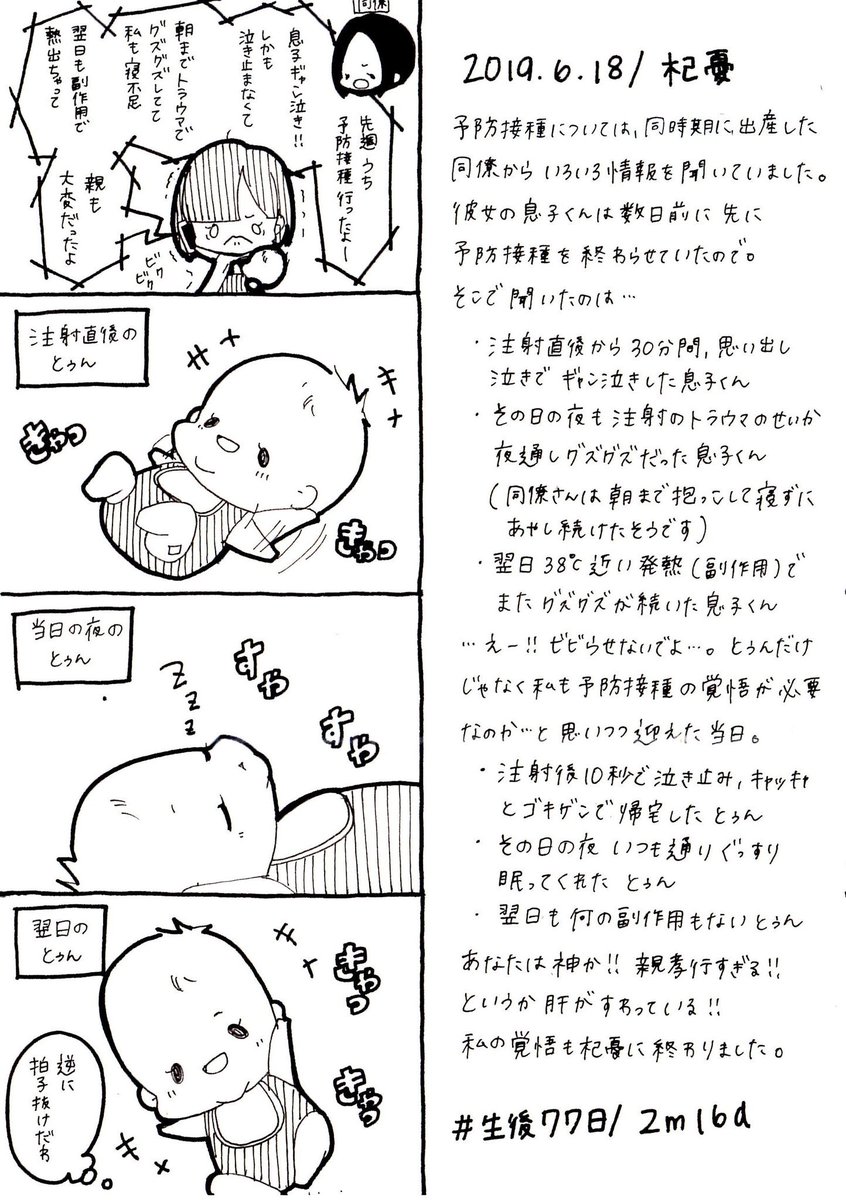 同僚
先週うち
予防接種行ったよー
息子ギャン泣き!!
しかも
泣き止まなくて
朝までトラウマで
グズグズしてて
私も寝不足
翌日も副作用で
熱出ちゃって
親も
大変だったよ
ビク
ビク
注射直後の
とぅん
きゃっ
きゃっ
当日の夜の
とぅん
zzz
すや
すや
翌日の
とぅん
きゃっ
きゃっ
逆に
拍子抜けだわ
2019.6.18/ 杞憂
予防接種については,同時期に出産した
同僚からいろいろ情報を聞いていました。
彼女の息子くんは数日前に先に
予防接種を終わらせていたので。
そこで聞いたのは…
・注射直後から30分間,思い出し
泣きでギャン泣きした息子くん
・その日の夜も注射のトラウマのせいか
夜通しグズグズだった息子くん
(同僚さんは朝まで抱っこして寝ずに
あやし続けたそうです)
・翌日38℃近い発熱(副作用)で
またグズグズが続いた息子くん
…えー!!ビビらせないでよ…。とぅんだけ
じゃなく私も予防接種の覚悟が必要
なのか…と思いつつ迎えた当日。
・注射後10秒で泣き止み,キャッキャ
とゴキゲンで帰宅したとぅん
・その日の夜いつも通りぐっすり
眠ってくれたとぅん
・翌日も何の副作用もないとぅん
あなたは神か!!親孝行すぎる!!
というか肝がすわっている!!
私の覚悟も杞憂に終わりました。
#生後77日/ 2m16d